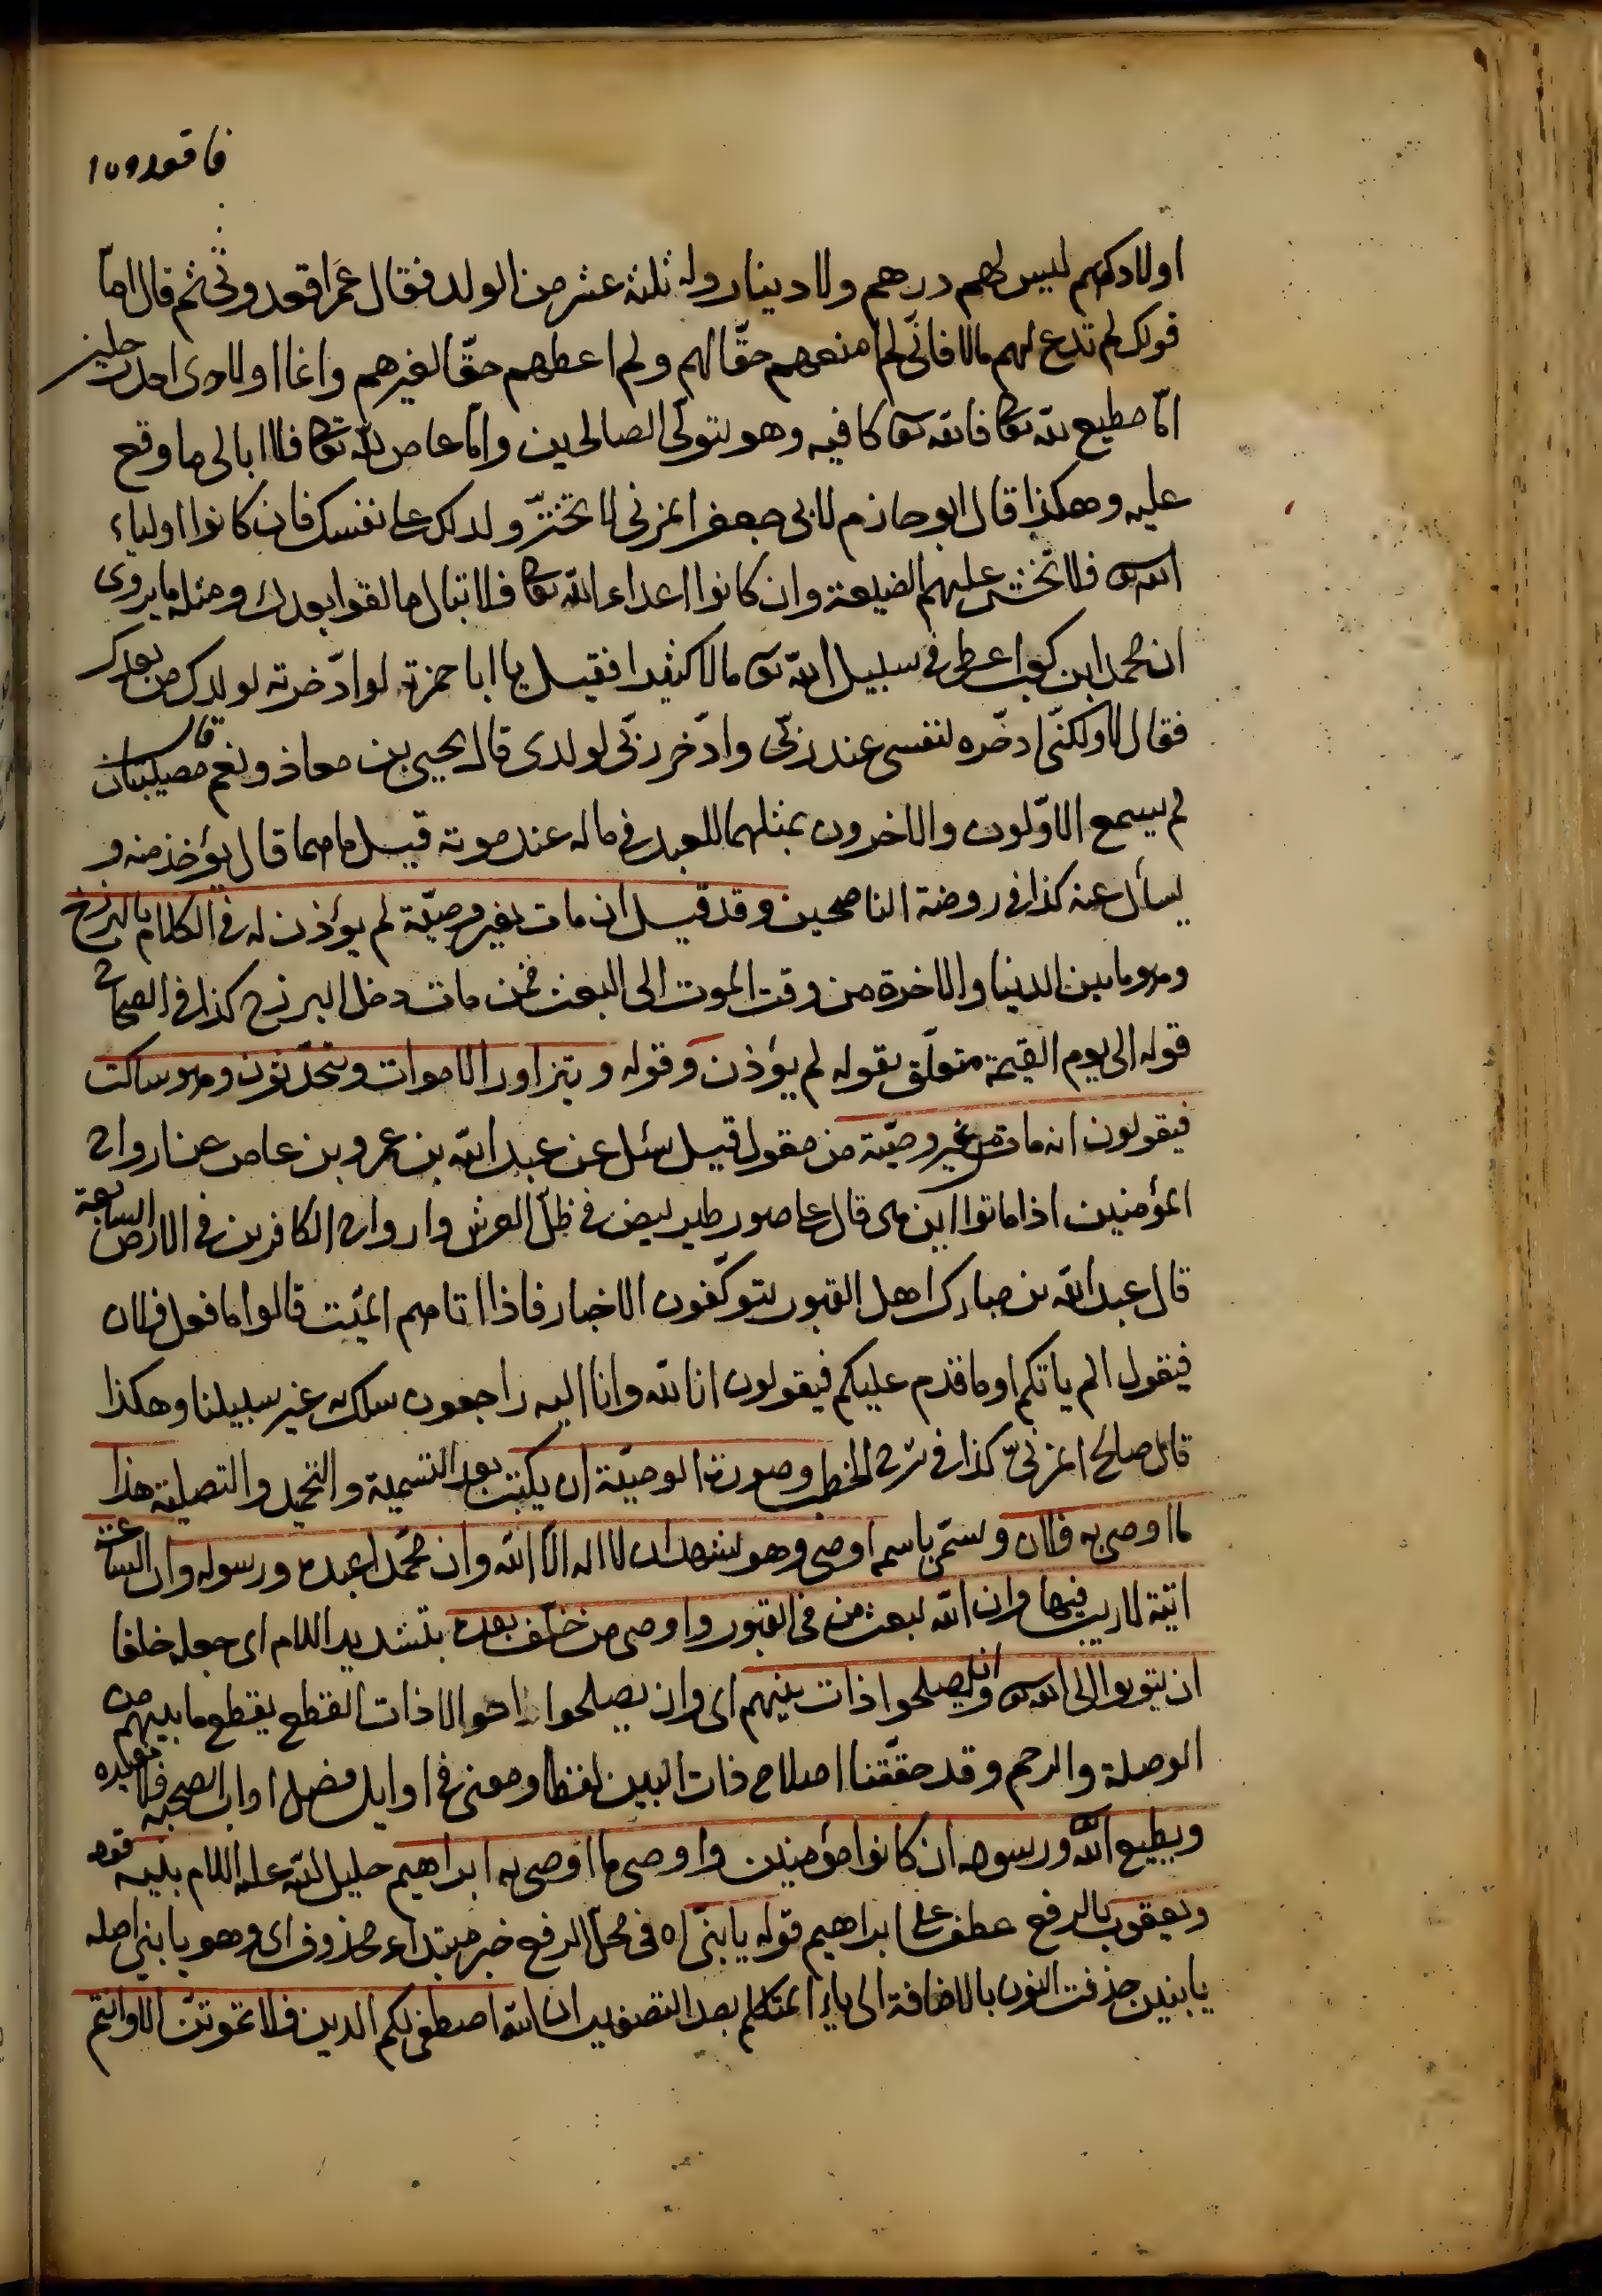 اولادكم ليس لهم درهم ولا دينار وله ثلثة عشر من الولد فقال عمر اقعدونى ثم قال اما
قولك لم تدع لهم مالا فانّى لم امنعهم حقّا لهم ولم اعطهم حقّا لغيرهم وانما اولادى احد رجلين
امّا مطيع لله تعا فالله تعا كافيه وهو يتولّى الصالحين وامّا عاص لله تعا فلا ابالى ما وقع
عليه وهكذا قال ابو حازم لابى جعفر المزنى لا تختر ولدك على نفسك فان كانوا اولياء
الله تعا فلا تخش عليهم الضيعة وان كانوا اعداء الله تعا فلا تبال ما لقوا بعدك ومثله ما يروى
ان محمد ابن كعب اعطى فى سبيل الله تعا مالا كثيرا فقيل يا ابا حمزة لو ادّخرته لولدك من بعدك
فقال لا ولكنّى ادخّره لنفسى عند ربّى وادّخر ربّى لولدى قال يحيى بن معاذ ونعم قال مصيبتان
لم يسمع الاوّلون والاخرون بمثلهما للعبد فى ماله عند موته قيل ما هما قال يؤخذ منه و
يسأل عنه كذا فى روضة الناصحين وقد قيل ان مات بغير وصيّة لم يؤذن له فى الكلام بالبرزخ
وهو ما بين الدنيا والاخرة من وقت الموت الى البعث فمن مات دخل البرزخ كذا فى الصحاح
قوله الى يوم القيمة متعلّق بقوله لم يؤذن وقوله ويتزاور الاموات ويتحدّثون وهو ساكت
فيقولون انه مات من غير وصيّة من مقول قيل سئل عن عبد الله بن عمرو بن عاص عن ارواح
المؤمنين اذا ماتوا اين هى قال على صور طير بيض فى ظلّ العرش وارواح الكافرين فى الارض السابعة
قال عبد الله بن مبارك اهل القبور يتوكّفون الاخبار فاذا اتاهم الميّت قالوا ما فعل فلان
فيقول الم ياتكم او ما قدم عليكم فيقولون انا لله وانا اليه راجعون سلك به غير سبيلنا وهكذا
قال صالح المزنىّ كذا فى شرح الخطب وصورة الوصيّة ان يكتب بعد التسمية والتحميد والتصلية هذا
ما اوصى به فلان ويسمّى باسمه اوصى وهو يشهد ان لا اله الا الله وان محمّدا عبده ورسوله وان الساعة
اتية لا ريب فيها وان الله يبعث من فى القبور واوصى من خلّف بعده بتشديد اللام اى جعله خلفا
ان يتوبوا الى الله تعا وان يصلحوا ذات بينهم اى وان يصلحوا احوالا ذات القطع يقطع ما بينهم من
الوصلة والرحم وقد حقّقنا اصلاح ذات البين لفظا ومعنى فى اوايل فصل اداب الصحبة فلا نعيده
ويطيع الله ورسوله ان كانوا مؤمنين واوصى ما اوصى به ابراهيم خليل الله عليه السلام بنيه قوله
ويعقوب بالرفع عطف على ابراهيم قوله يا بنىّ اه فى محلّ الرفع خبر مبتداء محذوف اى وهو يا بنى اصله
يا بنين حذفت النون بالاضافة الى ياء المتكلم بعد التصغير ان الله اصطفى لكم الدين فلا تموتنّ الا وانتم